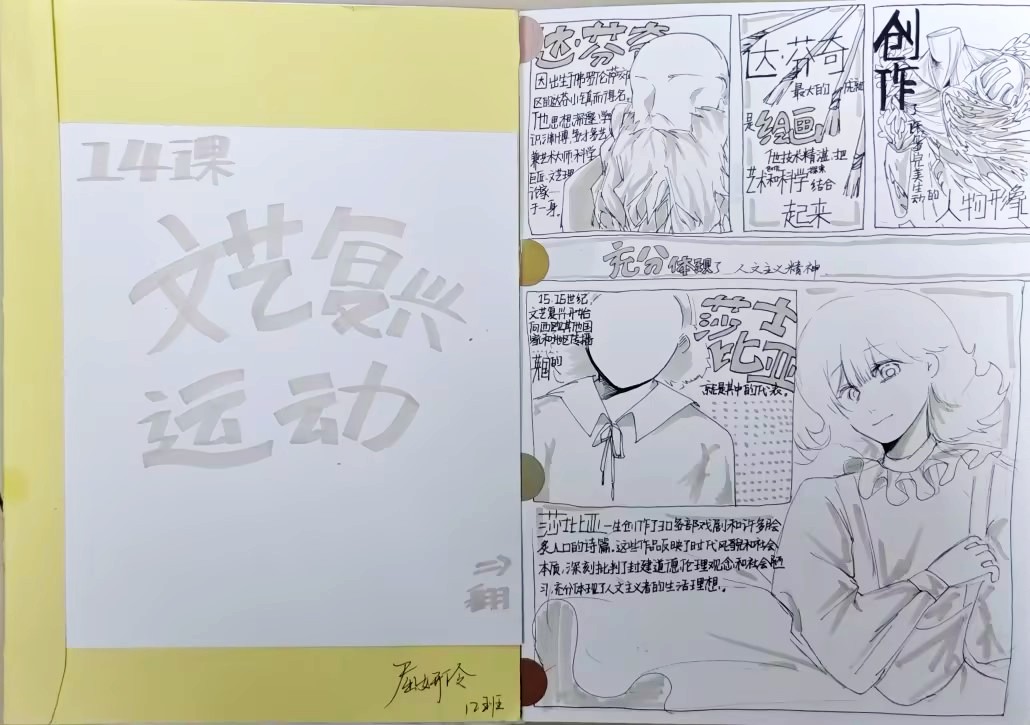 14课
文艺复兴
运动
⇒
翻
12班
达·芬奇
因出生于佛罗伦萨郊
区的达芬小镇而得名。
他思想深邃,学
识渊博,多才多艺
兼艺术大师,科学
巨匠,文艺理
论家
于一身。
达·芬奇
最大的成就
是绘画
他技术精湛,把
艺术和科学探索
结合
起来
创作
了许多完美生动的
人物形象
充分体现了人文主义精神
15、16世纪,
文艺复兴开始
向西欧其他国
家和地区传播
英国的
莎士
比亚
就是其中的代表。
莎士比亚一生创作了30多部戏剧和许多脍
炙人口的诗篇。这些作品反映了时代风貌和社会
本质,深刻批判了封建道德伦理观念和社会陋
习,充分体现了人文主义者的生活理想。